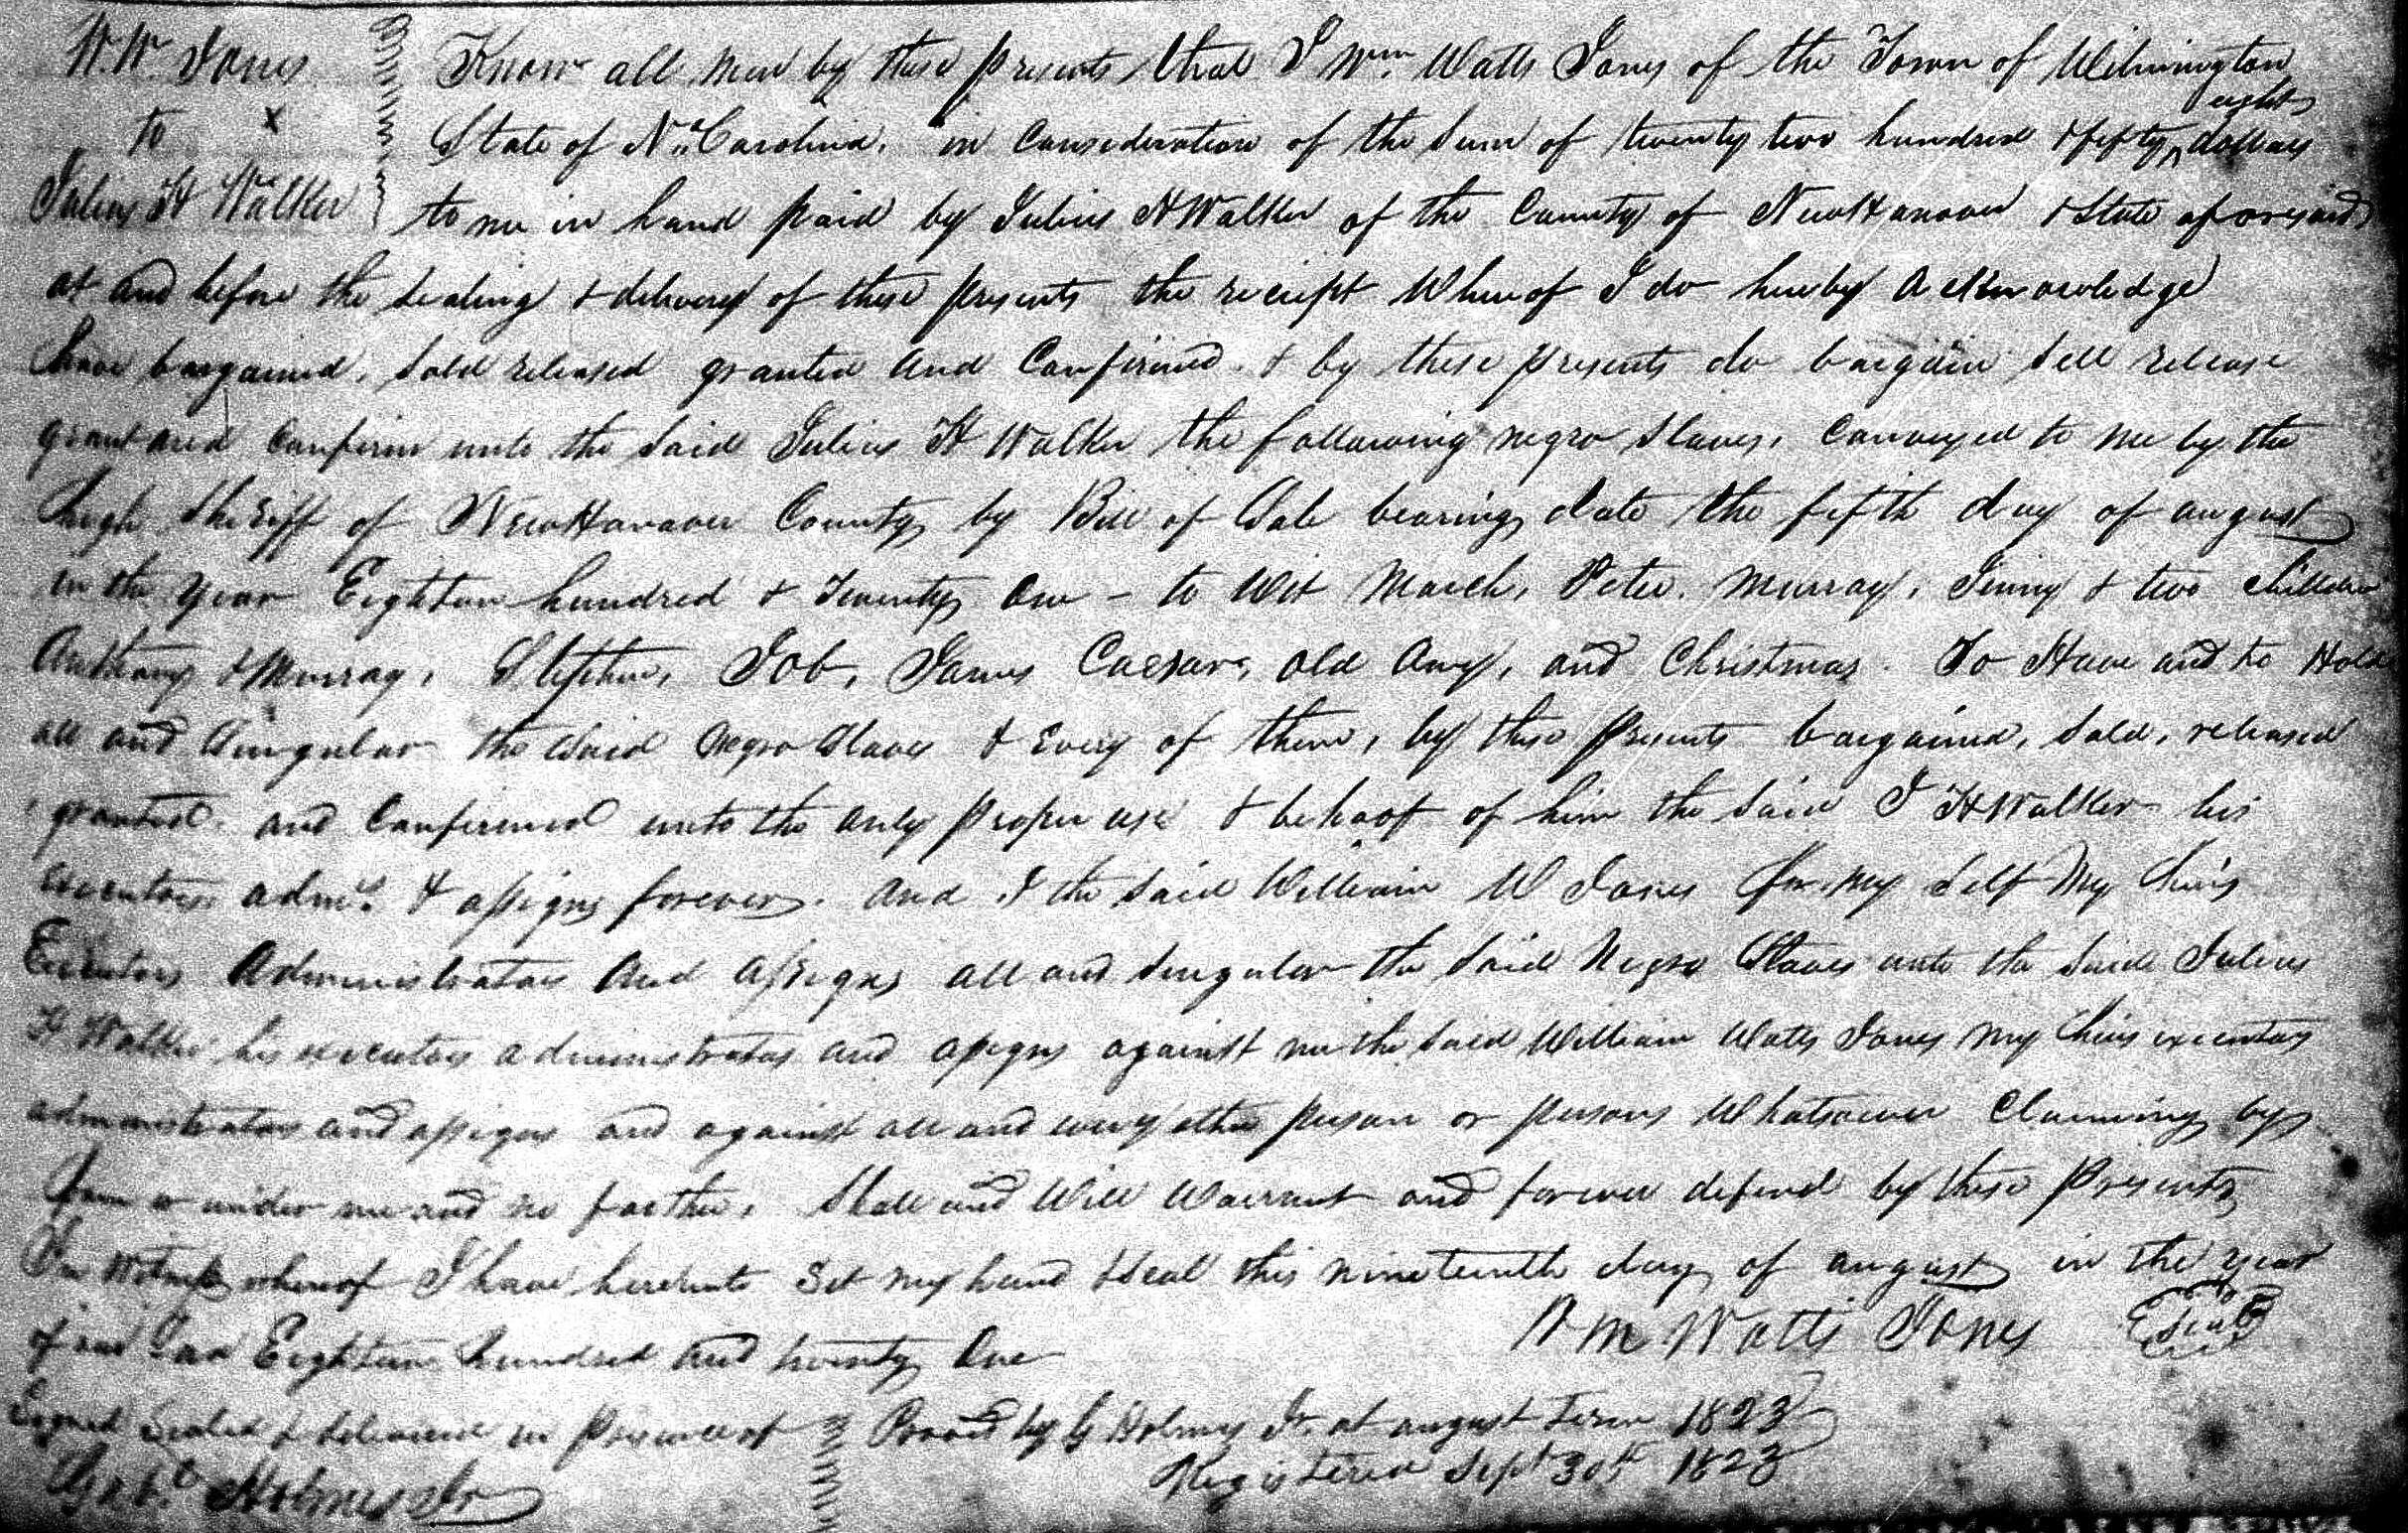 W. W. Jones
to x
Julius H Walker
Know all Men by these presents that I Wm. Watts Jones of the Town of Wilmington
State of No. Carolina. in Consideration of the Sum of twenty two hundred & fifty eight dollars
to me in hand paid by Julius H Walker of the County of New Hanover & State aforesaid
at and before the Sealing & delivery of these presents the receipt Whereof I do hereby acknowledge
have bargained, Sold released granted and Confirmed. & by these presents do bargain Sell release
grant and Confirm unto the Said Julius H Walker the following negro Slaves, Conveyed to me by the
high Sheriff of New Hanover County by Bill of Sale bearing date the fifth day of august
in the Year Eighteen hundred & Twenty One - to Wit March, Peter, Murray, Jenny & two children
Anthony & Murray, Stephen, Job, James Caesar, old Amy, and Christmas. To Have and to Hold
all and Singular the Said Negro Slaves & Every of them, by these presents bargained, Sold, released
granted. and Confirmed unto the only proper use & behoof of him the Said J H Walker his
executors admrs. & assigns forever. and I the Said William W Jones for my Self My heirs
Executors Administrators And assigns all and Singular the Said Negro Slaves unto the Said Julius
H Walker his executors administrators and assigns against me the Said William Watts Jones My heirs executors
administrators and assigns and against all and every other person or persons Whatsoever Claiming by
from or under me and no farther, Shall and Will Warrant and forever defend by these Presents
In Witness whereof I have hereunto Set my hand & Seal this nineteenth day of august in the year
of our Lord Eighteen hundred and twenty One
Wm Watts Jones Seal
Signed Sealed & delivered in presence of
Gabl. Holmes Jr
Proved by G Holmes Jr. at august Term 1823
Registered Sept 30th 1823